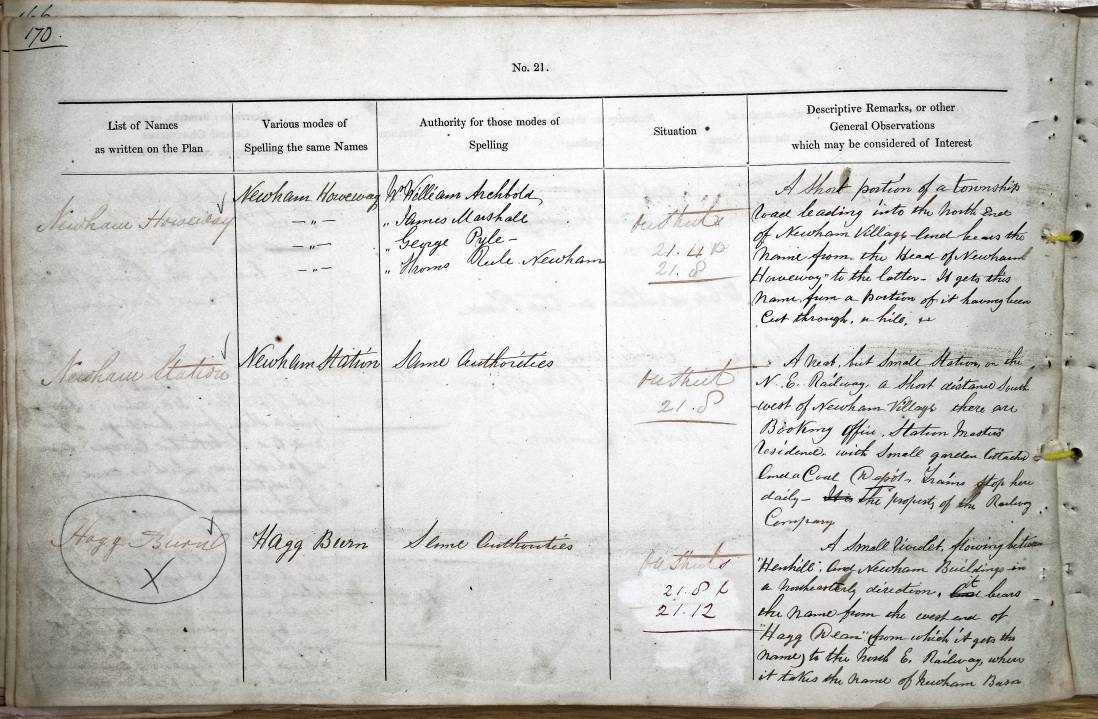 170.
No. 21.
List of Names
as written on the Plan
Various modes of
Spelling the same Names
Authority for those modes of
Spelling
Situation
Descriptive Remarks, or other
General Observations
which may be considered of Interest
Newham Howeway
Newham Howeway
— „ —
— „ —
— „ —
Mr William Archbold
„ James Marshall
„ George Pyle -
„ Thoms Rule Newham
21.4
21.8
A Short portion of a township
road leading into the North End
of Newham Village and bears the
name from the Head of Newham
Howeway" to the latter - It gets this
name from a portion of it having been
Cut through, a hill,
Newham Station
Newham Station
Same Authorities
21.8
A neat, but Small Station, on the
N. E. Railway, a Short distance South
west of Newham Village there are
Booking Office, Station Masters
residence with Small garden attached
And a Coal Depôt, Trains Stop here
daily - It is The property of the Railway
Company
Hagg Burn
X
Hagg Burn
Same Authorities
21.8
21.12
A Small rivulet, flowing between
"Henhill" and Newham Buildings in
a northeasterly direction, it bears
the name from the west end of
"Hagg Dean" (from which it gets the
name) to the North E. Railway, where
it takes the name of Newham Burn